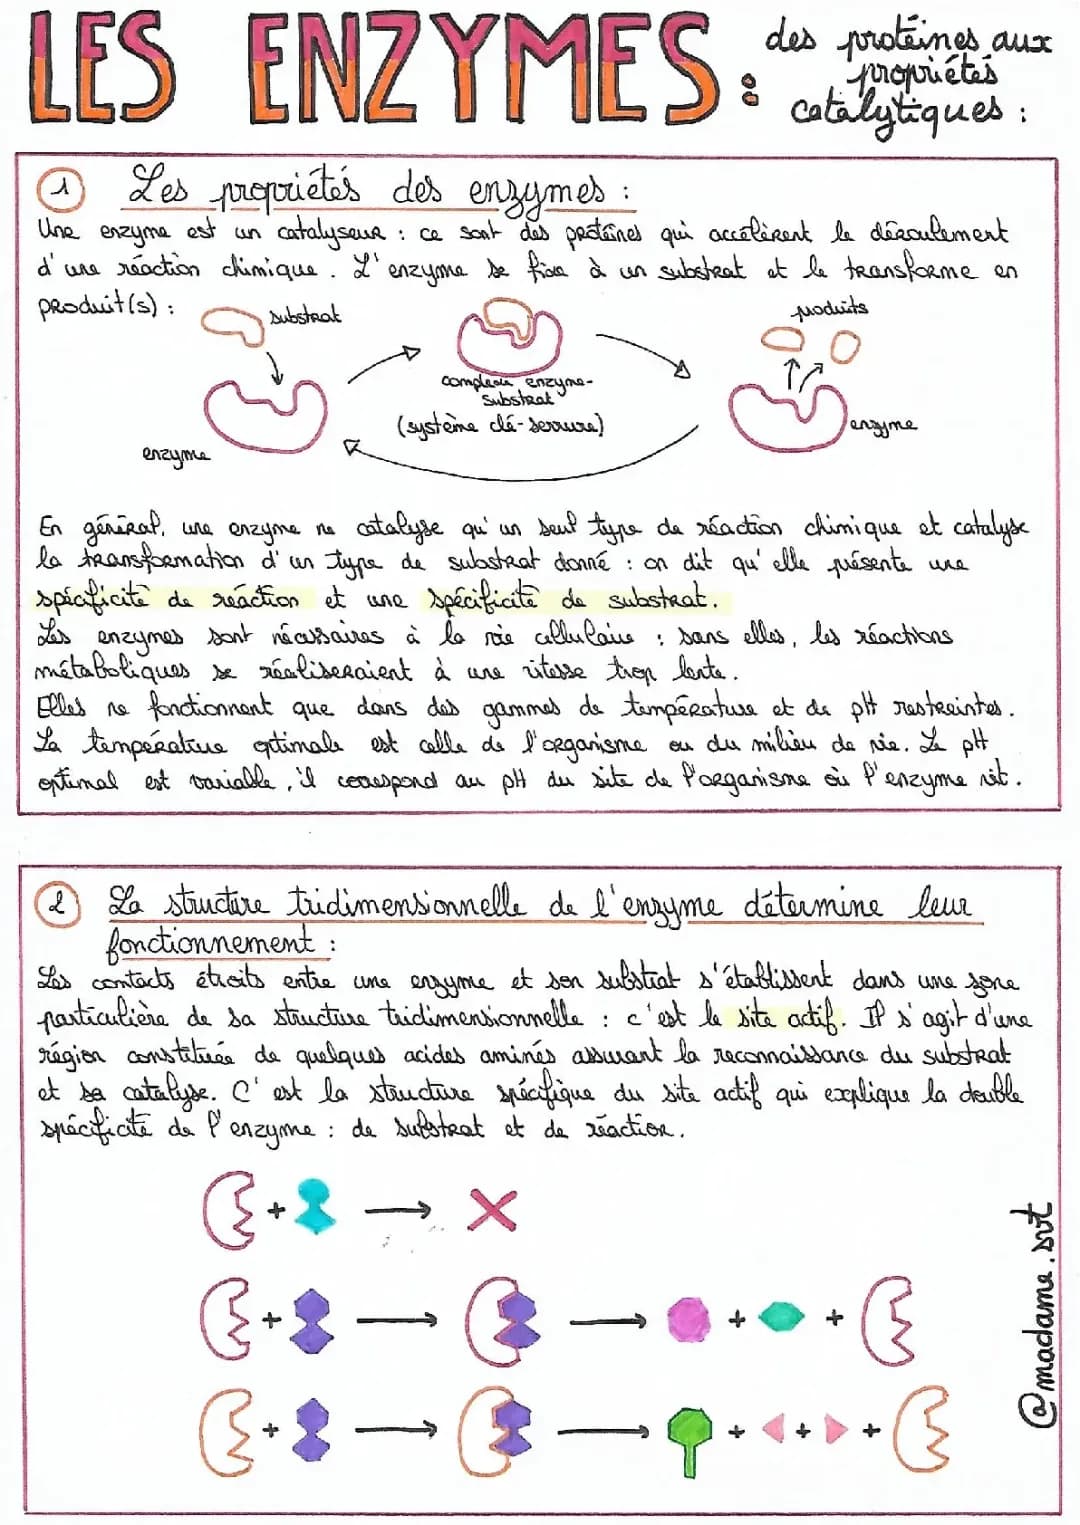 LES ENZYMES : des protéines aux
propriétés
catalytiques :
1 Les propriétés des enzymes :
Une enzyme est un catalyseur : ce sont des protéines qui accélèrent le déroulement
d'une réaction chimique. L'enzyme se fixe à un substrat et le transforme en
produit(s) :
substrat
produits
complexe enzyme-
substrat
(système clé-serrure)
enzyme
enzyme
En général, une enzyme ne catalyse qu'un seul type de réaction chimique et catalyse
la transformation d'un type de substrat donné : on dit qu'elle présente une
spécificité de réaction et une spécificité de substrat.
Les enzymes sont nécessaires à la vie cellulaire : sans elles, les réactions
métaboliques se réaliseraient à une vitesse trop lente.
Elles ne fonctionnent que dans des gammes de température et de pH restreintes.
La température optimale est celle de l'organisme ou du milieu de vie. Le pH
optimal est variable, il correspond au pH du site de l'organisme où l'enzyme vit.
2 La structure tridimensionnelle de l'enzyme détermine leur
fonctionnement :
Les contacts étroits entre une enzyme et son substrat s'établissent dans une zone
particulière de sa structure tridimensionnelle : c'est le site actif. Il s'agit d'une
région constituée de quelques acides aminés assurant la reconnaissance du substrat
et sa catalyse. C'est la structure spécifique du site actif qui explique la double
spécificité de l'enzyme : de substrat et de réaction.
+
+ + +
+ + + +
@madame.svt